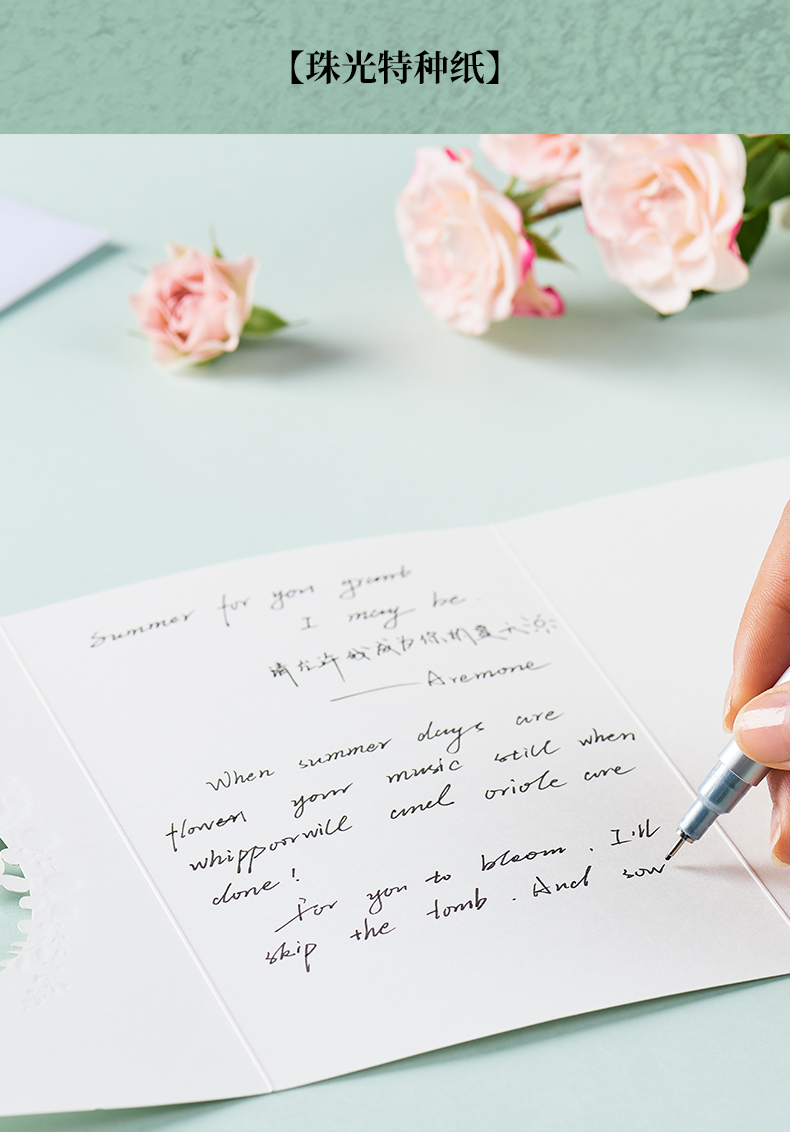 【珠光特种纸】
summer for you grant
I may be.
请允许我成为你的夏天
Aremone
When summer days are
flowen your music still when
whippoorwill and oriole are
done!
For you to bloom. I'll
skip the tomb. And sow